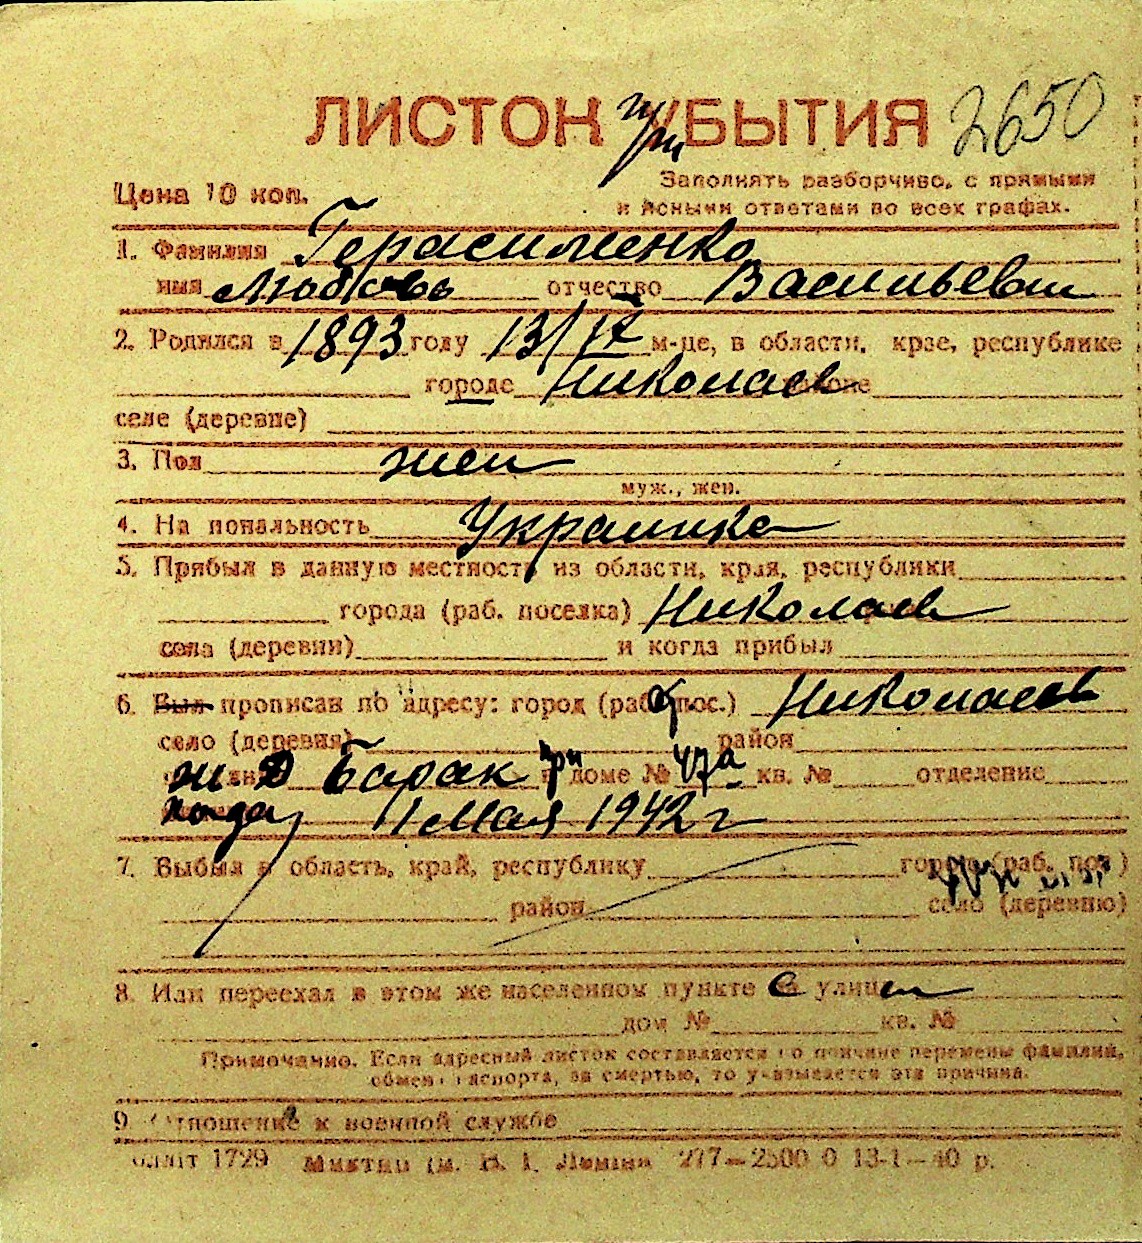 ЛИСТОК при УБЫТИЯ 2650
Цена 10 коп.
Заполнять разборчиво, с прямыми
и ясными ответами во всех графах.
1. Фамилия Герасименко
имя Любовь отчество Васильевн
2. Родился в 1893 году 13/IV м-це, в области, крае, республике
городе Николаев районе
селе (деревне)
3. Пол жен
муж., жен.
4. На иональность Украинка
5. Прибыл в данную местность из области, края, республики
города (раб. поселка) Николаев
села (деревни) и когда прибыл
6. Был прописан по адресу: город (раб. пос.) Николаев
село (деревня) район
Ж Д Барак при доме № 47а кв. № отделение
Когда 1 Мая 1942 г
7. Выбыл в область, край, республику город (раб. пос.)
район село (деревню)
8. Или переехал в этом же населенном пункте с улицы
дом № кв. №
Примечание. Если адресный листок составляется по причине перемены фамилии,
обмен паспорта, за смертью, то указывается эта причина.
9. Отношение к военной службе
1729 277—2500 0 13-1—40 р.